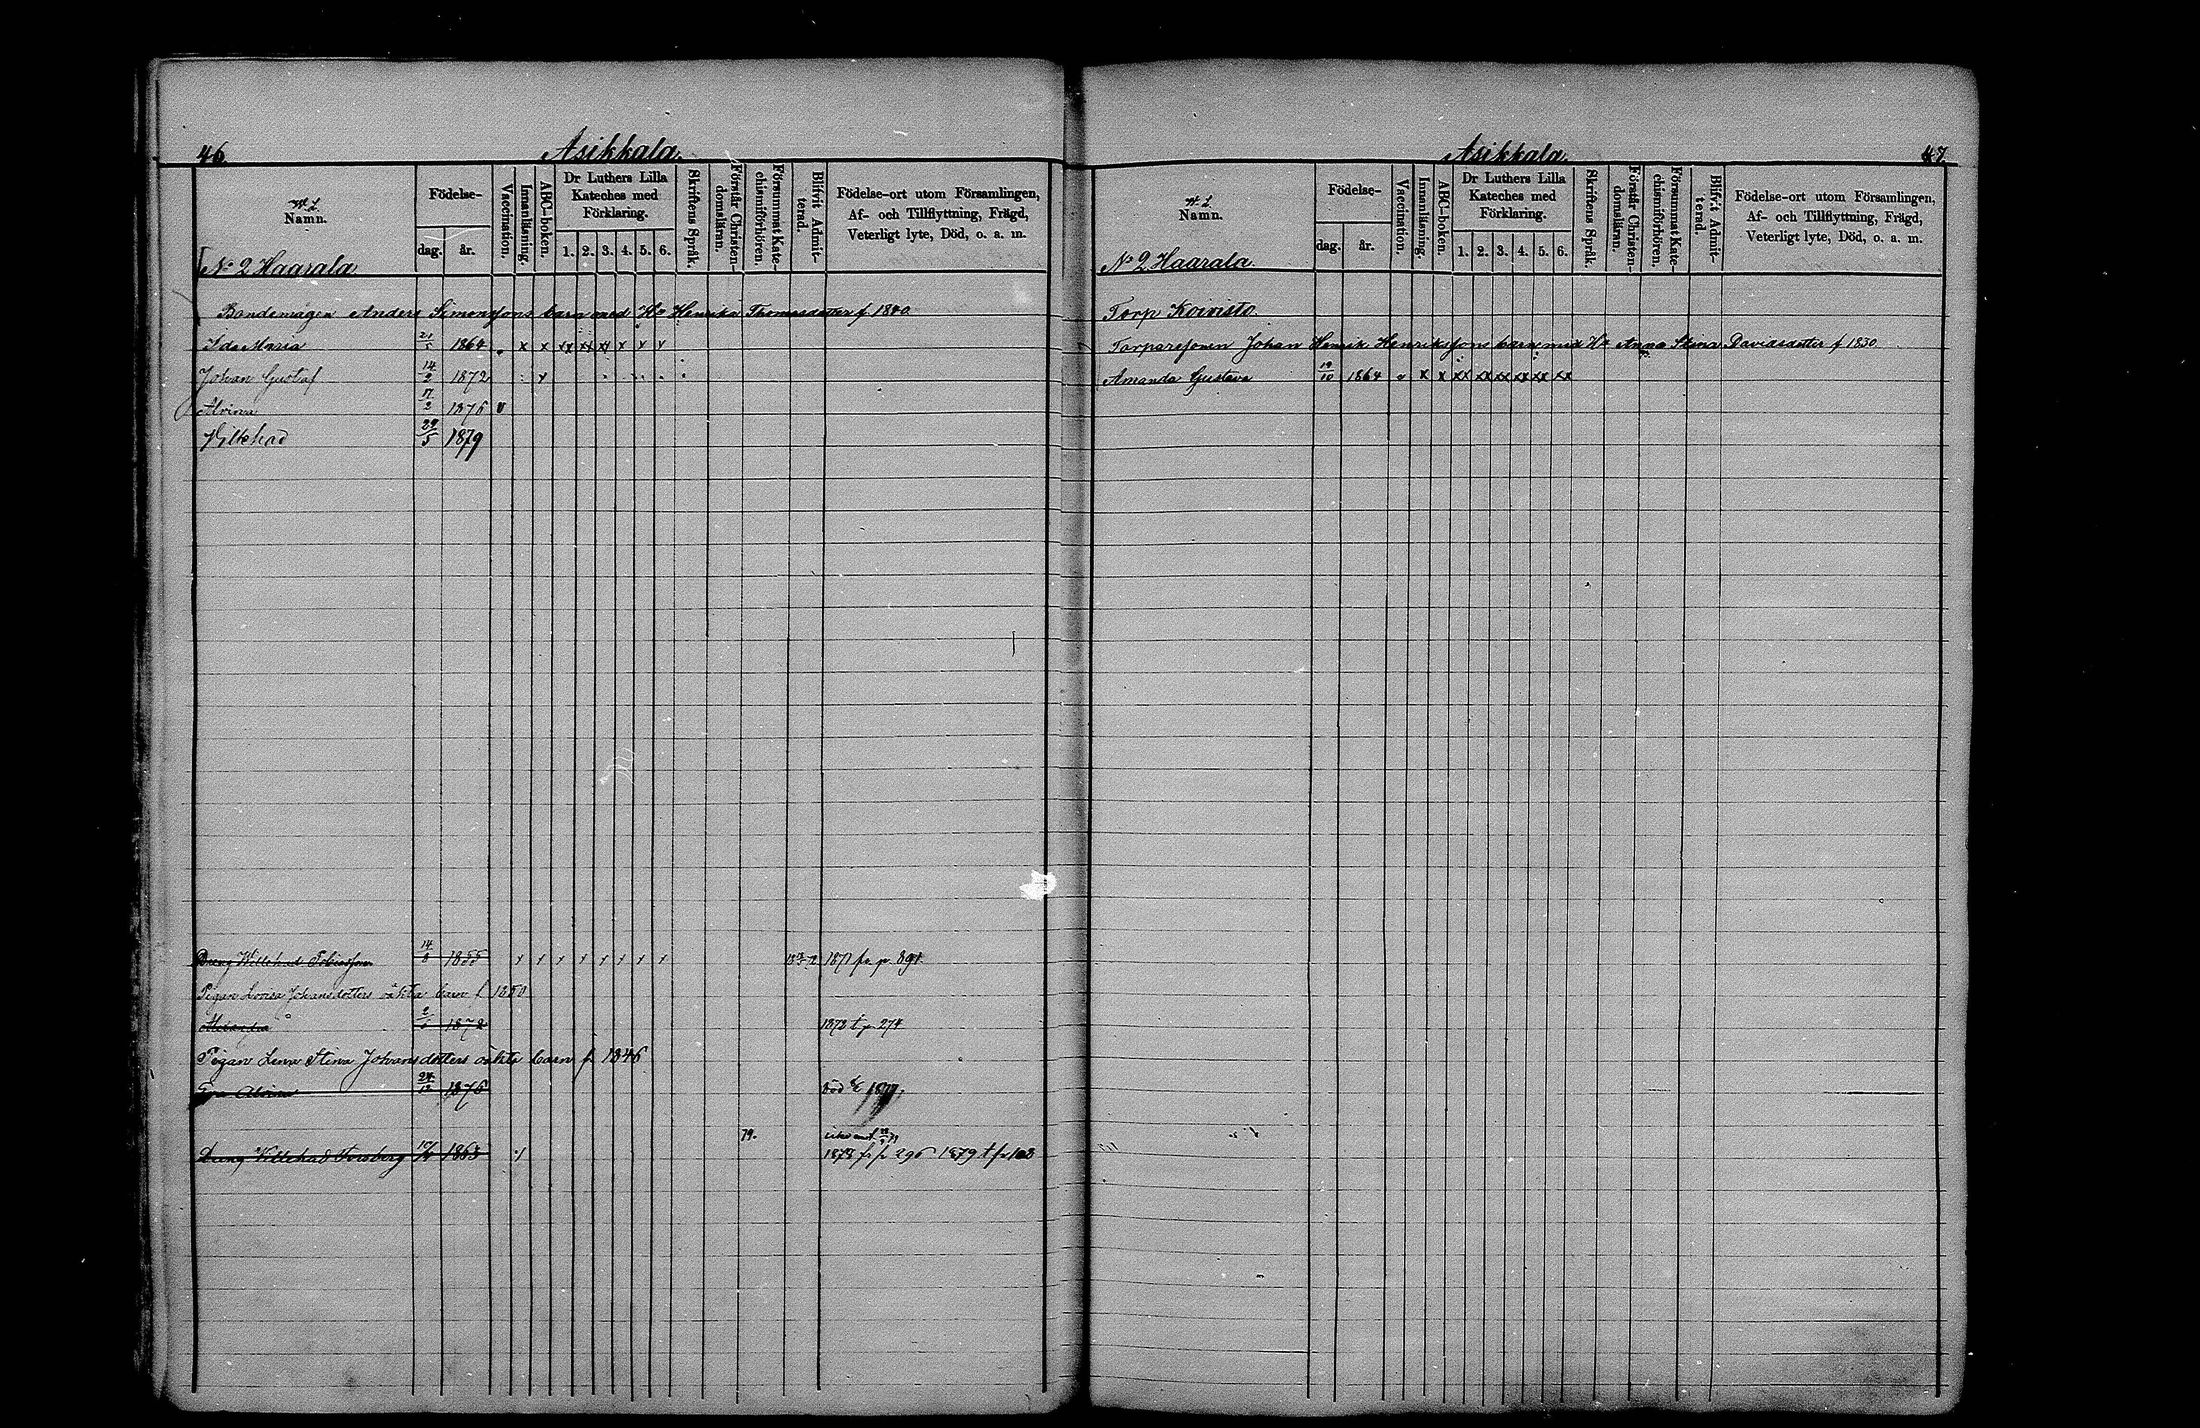 46.
Asikkala.
Namn.
Födelse-
dag.
år.
Vaccination.
Innanläsning.
ABC-boken.
Dr Luthers Lilla
Kateches med
Förklaring.
1. 2. 3. 4. 5. 6.
Skriftens Språk.
Förstår Christen-
domsläran.
Försummat Kate-
chismiförhören.
Blifvit Admit-
terad.
Födelse-ort utom Församlingen,
Af- och Tillflyttning, Frägd,
Veterligt lyte, Död, o. a. m.
No 2 Haarala
Bondemågen Anders Simonssons barn med Ha Henrika Thomasdotter f. 1840
Ida Maria 21/5 1864 x x xx xx xx x x x
Johan Gustaf 14/2 1872 x
Alvina 17/2 1876 v
Villehad 29/5 1879
Dreng Willehad Tobiasson 14/8 1855 x x x x x x x x 1871 fr. p. 891
Pigan Lovisa Johansdotters oäkta barn f. 1850
1872 1873 t p 274
Pigan Lena Stina Johansdotters oäkta barn f. 1846
Alvina 24/12 1876 död 1877.
79.
Dreng Villehad Forsberg 1863 1878 fr p 296 1879 t p 108
Asikkala.
47.
Namn.
Födelse-
dag.
år.
Vaccination.
Innanläsning.
ABC-boken.
Dr Luthers Lilla
Kateches med
Förklaring.
1. 2. 3. 4. 5. 6.
Skriftens Språk.
Förstår Christen-
domsläran.
Försummat Kate-
chismiförhören.
Blifvit Admit-
terad.
Födelse-ort utom Församlingen,
Af- och Tillflyttning, Frägd,
Veterligt lyte, Död, o. a. m.
No 2 Haarala.
Torp Koivisto
Torparesonen Johan Henrik Henrikssons barn med Ha Anna Stina Davidsdotter f 1830
Amanda Gustava 19/10 1864 v x x xx xx xx xx xx xx